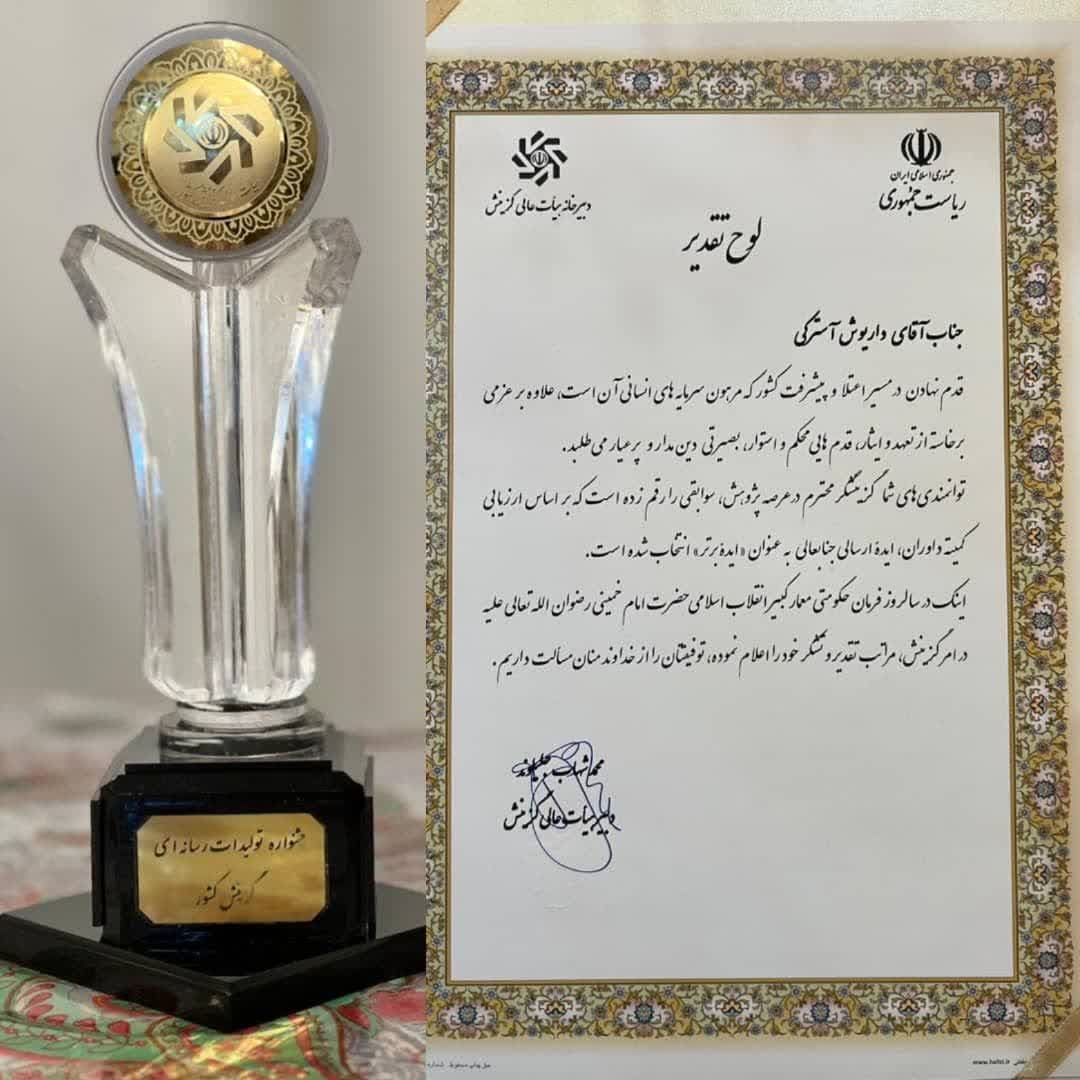 جشنواره تولیدات رسانه ای
گزینش کشور
جمهوری اسلامی ایران
ریاست جمهوری
دبیرخانه هیأت عالی گزینش
لوح تقدیر
جناب آقای داریوش آسترکی
قدم نهادن در مسیر اعتلا و پیشرفت کشور که مرهون سرمایه های انسانی آن است، علاوه بر عزمی
برخاسته از تعهد و ایثار، قدم هایی محکم و استوار، بصیرتی دین مدار و پرعیار می طلبد.
توانمندی های شما گزینشگر محترم در عرصه پژوهش، سوابقی را رقم زده است که بر اساس ارزیابی
کمیته داوران، ایدهٔ ارسالی جنابعالی به عنوان «ایدهٔ برتر» انتخاب شده است.
اینک در سالروز فرمان حکومتی معمار کبیر انقلاب اسلامی حضرت امام خمینی رضوان الله تعالی علیه
در امر گزینش، مراتب تقدیر و تشکر خود را اعلام نموده، توفیقتان را از خداوند منان مسألت داریم.
محمد شهاب جلیلوند
دبیر هیأت عالی گزینش
www.hafist.ir